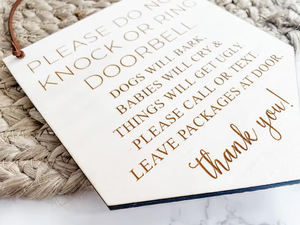 PLEASE DO NOT
KNOCK OR RING
DOORBELL
DOGS WILL BARK,
BABIES WILL CRY &
THINGS WILL GET UGLY.
PLEASE CALL OR TEXT.
LEAVE PACKAGES AT DOOR
thank you!